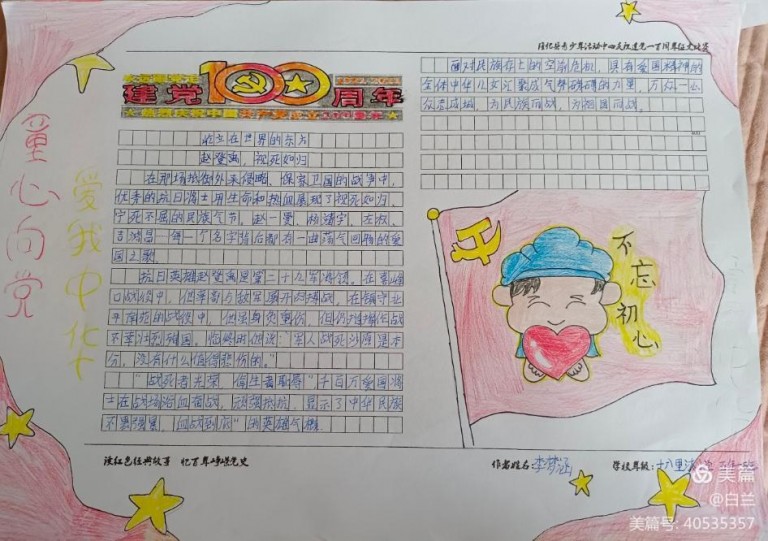 庆祝建党一百周年征文比赛
100
建党 周年
屹立在世界的东方
赵登禹,视死如归
在那场抵御外来侵略、保家卫国的战争中,
优秀的抗日将士用生命和热血展现了视死如归、
宁死不屈的民族气节,赵一曼、杨靖宇、左权、
吉鸿昌一个个名字背后都有一曲荡气回肠的爱
国之歌。
抗日英雄赵登禹是第二十九军将领。在喜峰
口战役中,他率部与敌军展开
战役中,他虽身负重伤,但仍指挥作战
不幸壮烈殉国。临终时他说:军人战死沙场是本
分,没有什么值得悲伤的。”
“战死者光荣 偷生者耻辱”千百万爱国将
士在战场浴血奋战,顽强抵抗,显示了中华民族
不畏强暴,血战到底”的英雄气概
面对民族存亡的空前危机,具有爱国精神的
全体中华儿女汇聚成气势磅礴的力量,万众一心
众志成城,为民族而战,为祖国而战。
童心向党
爱我中华
不忘初心
读红色经典故事 忆百年峥嵘党史
作者姓名:李梦涵
学校年级:十八里
美篇
@白兰
美篇号: 40535357